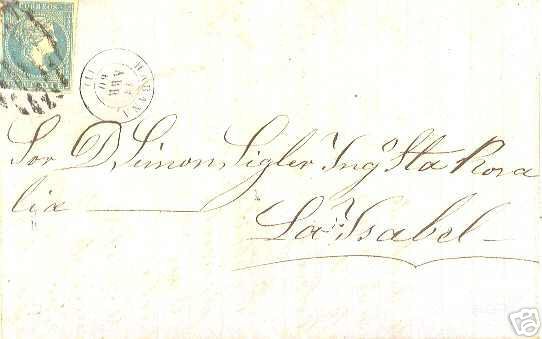 CORREOS
HABANA
ABR
60
(1)
Sor D. Simon Sigler Yngº Sta Rosa
lia
La Ysabel